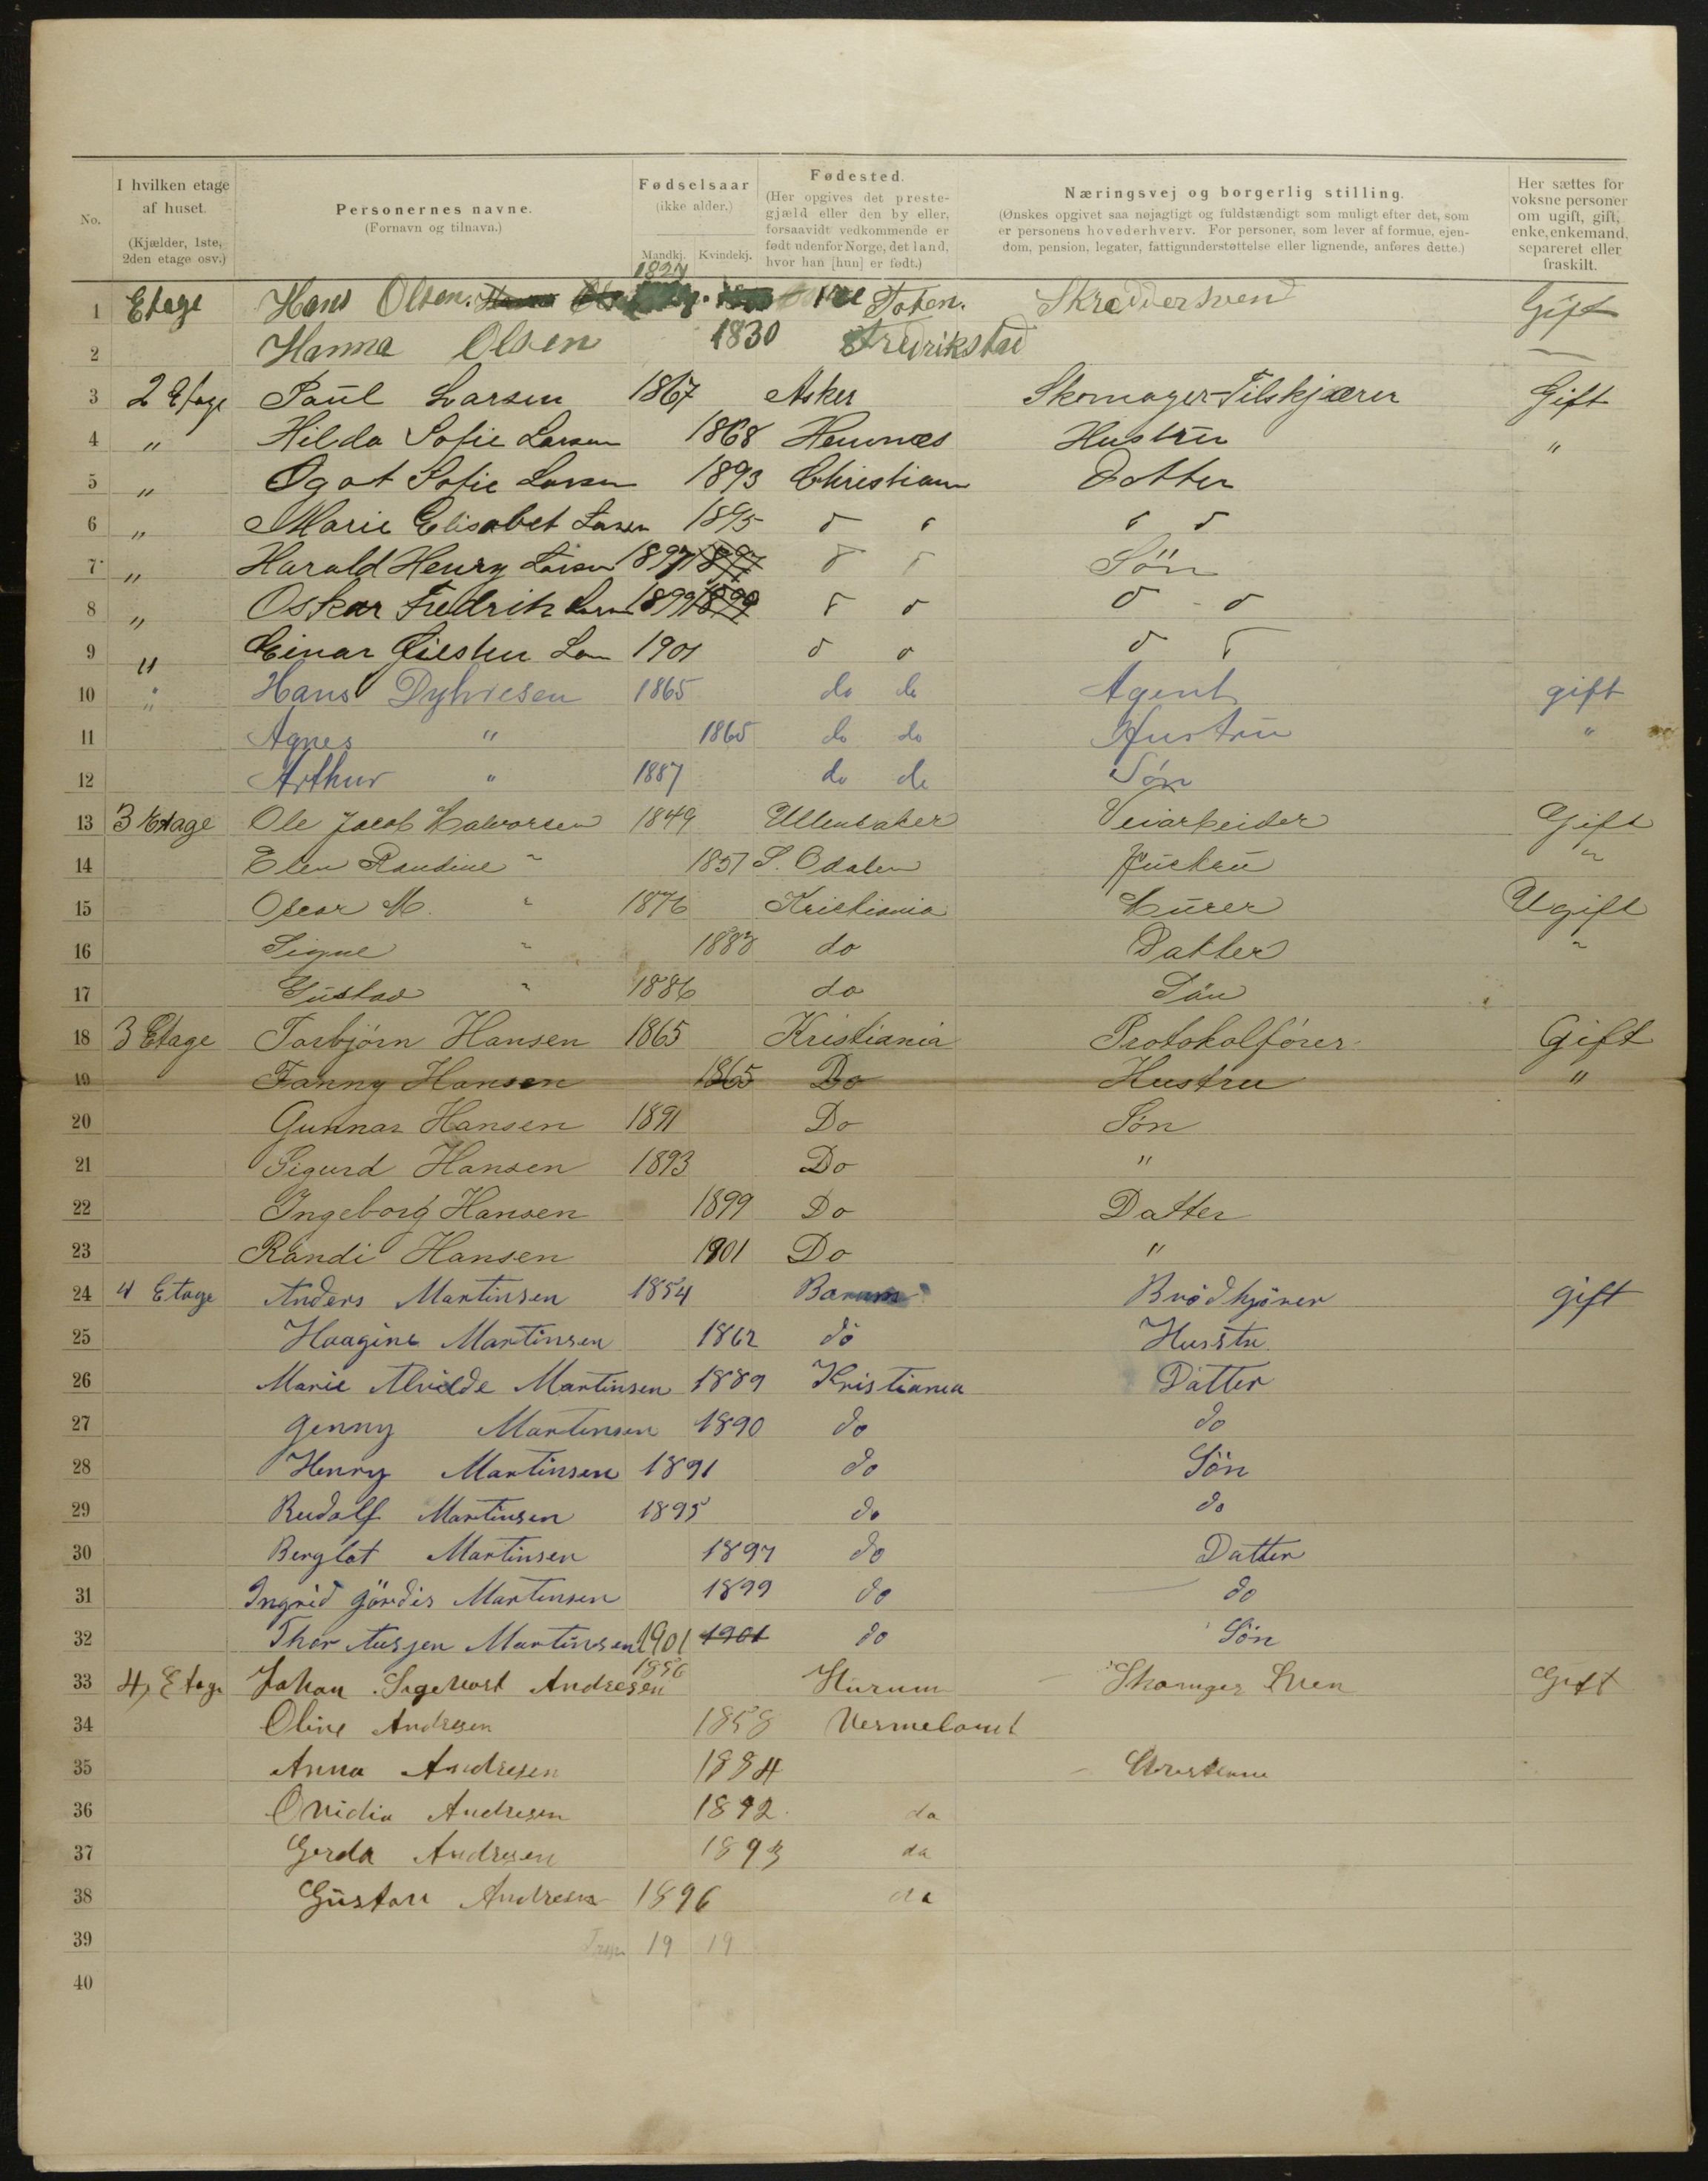 No. I hvilken etage af huset. (Kjælder, 1ste, 2den etage osv.) Personernes navne. (Fornavn og tilnavn.) Fødselsaar (ikke alder.) Mandkj. Kvindekj. Fødested. (Her opgives det prestegjæld eller den by eller, forsaavidt vedkommende er født udenfor Norge, det land, hvor han [hun] er født.) Næringsvej og borgerlig stilling. (Ønskes opgivet saa nøjagtigt og fuldstændigt som muligt efter det, som er personens hovederhverv. For personer, som lever af formue, ejendom, pension, legater, fattigunderstøttelse eller lignende, anføres dette.) Her sættes for voksne personer om ugift, gift, enke, enkemand, separeret eller fraskilt.
1 Etage Hans Olsen. 1827 Toten. Skreddersvend Gift
2 Hanna Olsen 1830 Fredrikstad
3 2 Etage Paul Larsen 1867 Asker Skomager-Tilskjærer Gift
4 " Hilda Sofie Larsen 1868 Hemnæs Hustru "
5 " Ogot Sofie Larsen 1893 Christiania Dotter
6 " Marie Elisabet Larsen 1895
7 " Harald Henry Larsen 1897 1897 Søn
8 " Oskar Fredrik Larsen 1899 1899
9 " Einar 1901
10 " Hans 1865 do do Agent gift
11 Agnes " 1865 do do Hustru "
12 Arthur " 1887 do do Søn
13 3 Etage Ole Jacob Halvorsen 1849 Ullensaker Veiarbeider Gift
14 Elen Randine " 1851 S. Odalen Hustru "
15 Oscar M. " 1876 Kristiania Murer Ugift
16 Signe " 1883 do Datter "
17 Gustav " 1886 do Søn
18 3 Etage Torbjørn Hansen 1865 Kristiania Protokolfører Gift
19 Fanny Hansen 1865 Do Hustru "
20 Gunnar Hansen 1891 Do Søn
21 Sigurd Hansen 1893 Do "
22 Ingeborg Hansen 1899 Do Datter
23 Randi Hansen 1901 Do "
24 4 Etage Anders Martinsen 1854 Barum Brødkjører gift
25 Haagine Martinsen 1862 do Husstru
26 Marie Alvilde Martinsen 1889 Kristiania Datter
27 Jenny Martinsen 1890 do do
28 Henry Martinsen 1891 do Søn
29 Rudolf Martinsen 1895 do do
30 Berglot Martinsen 1897 do Datter
31 Ingrid Jördis Martinsen 1899 do do
32 Thor Martinsen 1901 1901 do Søn
33 4 Etage Johan Andresen 1856 Hurum Skomager Sven Gift
34 Oline Andresen 1858 Vermelamt
35 Anna Andresen 1884 Christiania
36 Ovidia Andresen 1892 do
37 Gerda Andresen 1893 do
38 Gustav Andresen 1896 do
39 19 19
40